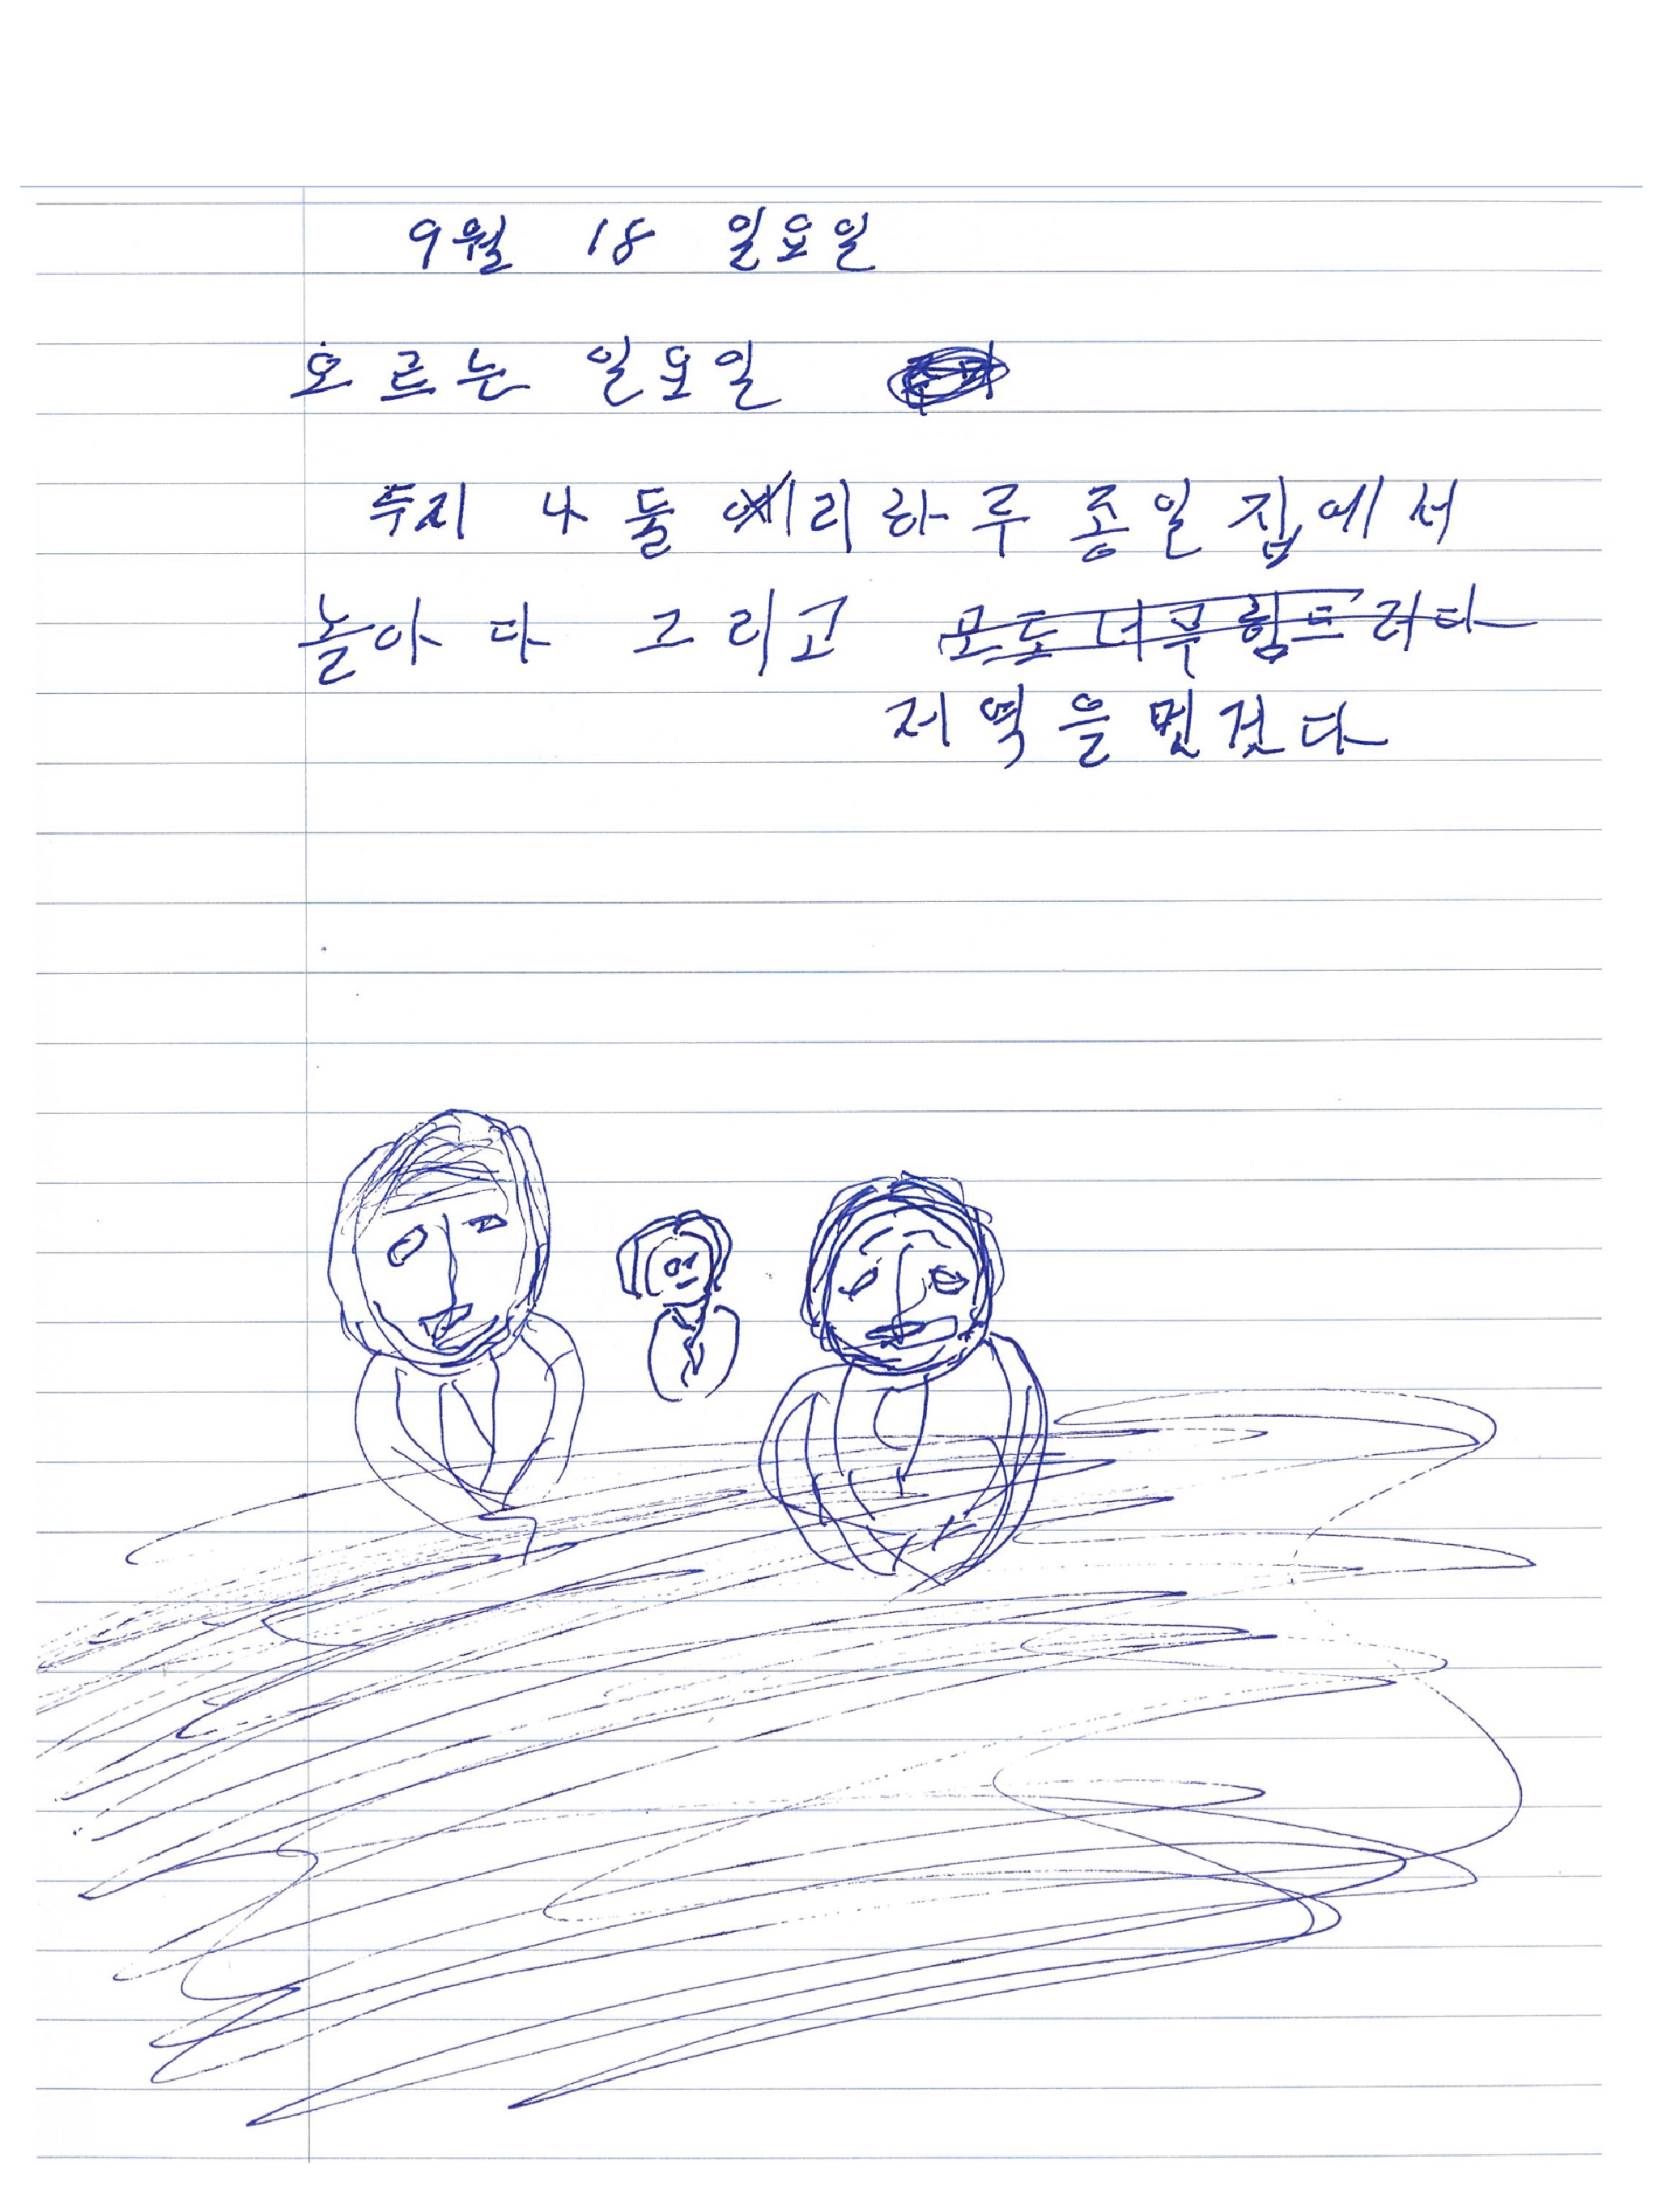 9월 18 일요일
오르는 일요일
두지 나 둘 리 하루 종일 집에서
놀아다 그리고 모도 너무 힘드러다
저멱을 멉겄다